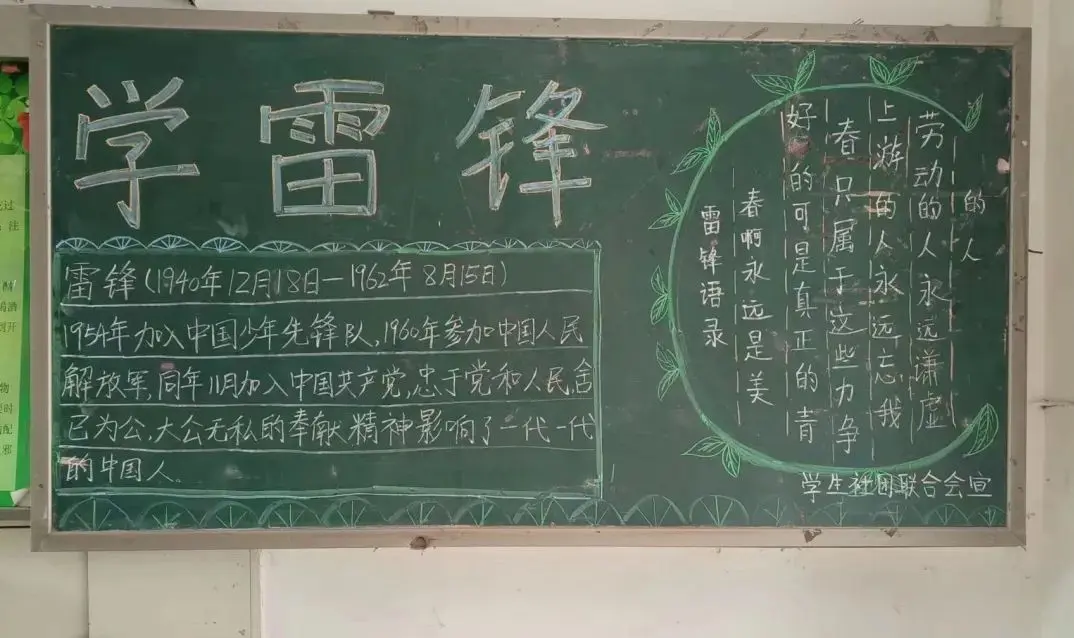 学雷锋
雷锋(1940年12月18日—1962年8月15日)
1954年加入中国少年先锋队,1960年参加中国人民
解放军,同年11月加入中国共产党,忠于党和人民,舍
己为公,大公无私的奉献精神影响了一代一代
的中国人.
雷锋语录
春啊永远是美
好的可是真正的青
春只属于这些力争
上游的人永远忘我
劳动的人永远谦虚
的人
学生社团联合会宣